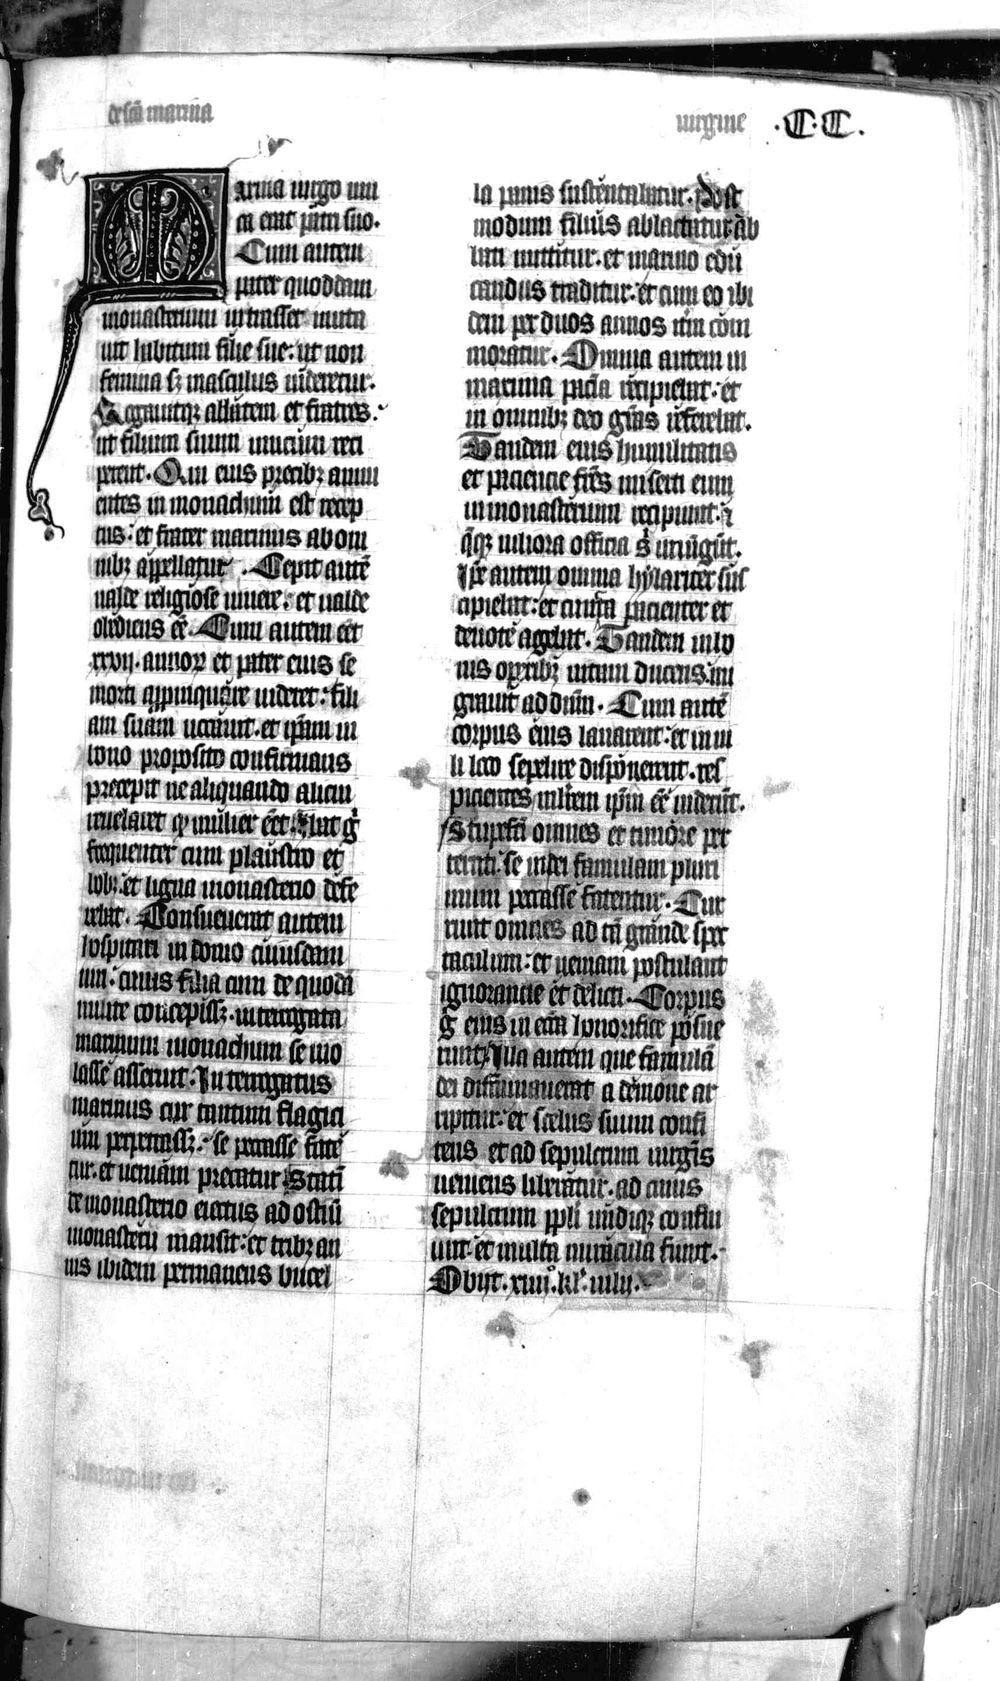 de scā marina
uirgine .CC.
Marina uirgo uni
ca erat patri suo.
Cum autem
pater quoddam
monasterium intrasset muta
uit habitum filie sue: ut non
femina sꝫ masculus uideretur.
Rogauitqꝫ abbatem et fratres.
ut filium suum unicum reci
perent. Qui eius precibꝫ annu
entes in monachum est recep
tus: et frater marinus ab om
nibꝫ appellatur. Cepit autē
ualde religiose uiuere: et ualde
obediens eē. Cum autem eēt
xxvij. annoꝝ et pater eius se
morti appinquare uideret: fili
am suam uocauit. et ipam in
bono proposito confirmans
precepit ne aliquando alicui
reuelaret qꝫ mulier eēt. Ibat gͦ
frequenter cum plaustro et
bobꝫ. et ligna monasterio defe
rebat. Consueuerat autem
hospitari in domo cuiusdam
uiri. cuius filia cum de quodā
milite concepissꝫ. interrogata
marinum monachum se uio
lasse asseruit. Interrogatus
marinus cur tantum flagici
um perpetrassꝫ. se peccasse fate
tur. et ueniam precatur. Statī
de monasterio eiectus ad ostiū
monasterii mansit: et tribꝫ an
nis ibidem permanens bucel
la panis sustentabatur. Post
modum filius ablactatur. ab
bati mittitur. et marino edu
candus traditur: et cum eo ibi
dem per duos annos itm com
moratur. Omnia autem in
maxima pacīa recipiebat: et
in omnibꝫ deo grās referebat.
Tandem eius humilitatis
et paciencie frēs miserti eum
in monasterium recipiunt. ⁊
qqꝫ uiliora officia sͥ iniūgūt.
Ipse autem omnia hylariter sus
cipiebat: et cuncta pacienter et
deuote agebat. Tandem in bo
nis operibꝫ uitam ducens. mi
grauit ad dnm. Cum autē
corpus eius lauarent: et in ui
li loco sepelire disponerent. res
picientes mulierem ipm eē uiderūt.
Stupefcī omnes et timore per
territi. se in dei famulam pluri
mum peccasse fatentur. Cur
runt omnes ad tā grande spec
taculum: et ueniam postulant
ignorancie et delicti. Corpus
gͦ eius in eccīa honorifice posue
runt. Illa autem que famulā
dei diffamauerat a demone ar
ripitur: et scelus suum confi
tens et ad sepulcrum uirgīs
ueniens liberatur. ad cuius
sepulcrum ppli undiqꝫ conflu
unt. et multa miracula fiunt.
Obijt. xiiijͦ. klʼ. iulij.